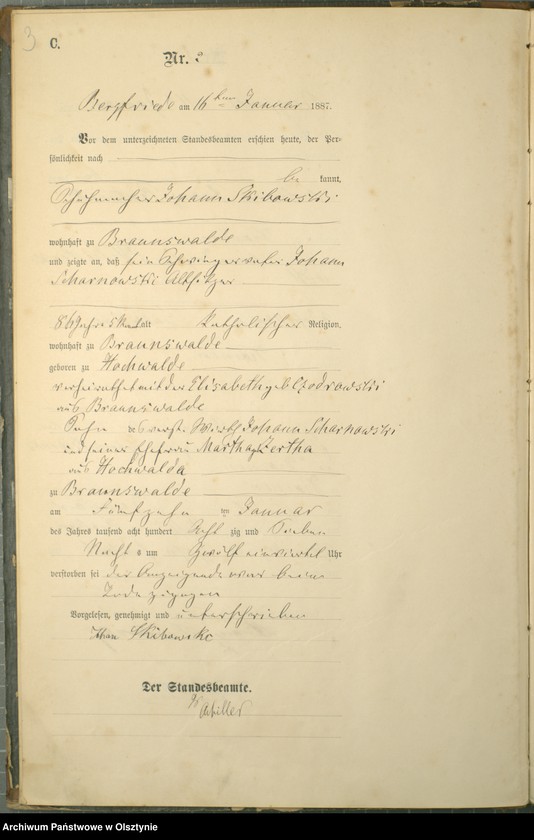 3
C.
Nr. 3
Bergfriede am 16ten Januar 1887.
Vor dem unterzeichneten Standesbeamten erschien heute, der Per-
sönlichkeit nach
be kannt,
Schuhmacher Johann Skibowski
wohnhaft zu Braunswalde
und zeigte an, daß sein Schwiegervater Johann
Scharnowski Altsitzer
86 Jahre alt Katholischer Religion,
wohnhaft zu Braunswalde
geboren zu Hochwalde
verheirathet mit der Elisabeth geb Czodrowski
aus Braunswalde
Sohn des verst. Wirth Johann Scharnowski
und seiner Ehefrau Martha Zertha
aus Hochwalda
zu Braunswalde
am Fünfzehn ten Januar
des Jahres tausend acht hundert Acht zig und Sieben
Nacht s um Zwölf einviertel Uhr
verstorben sei der Anzeigende war beim
Tode zugegen
Vorgelesen, genehmigt und unterschrieben
Skibowski
Der Standesbeamte.
Archiwum Państwowe w Olsztynie